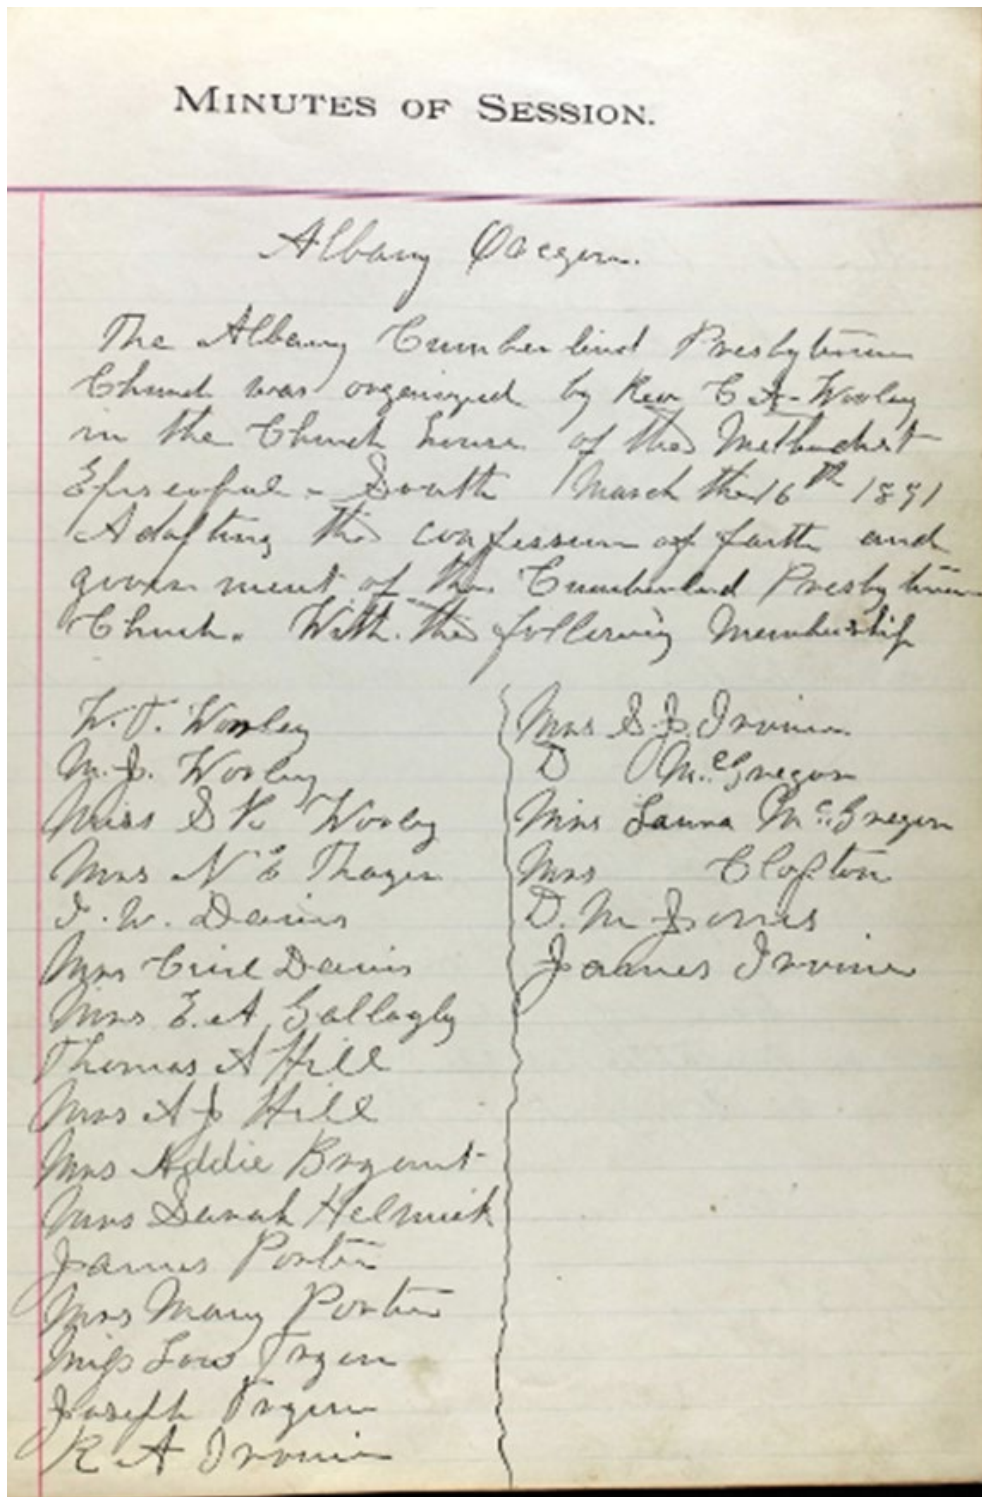 MINUTES OF SESSION.
Albany Oregon.
The Albany Cumberland Presbyterian
Church was organized by Rev C A Wooley
in the Church house of the Methodist
Episcopal - South March the 16th 1891
Adopting the confession of faith and
government of the Cumberland Presbyterian
Church. With the following Membership
W. T. Worley
M. J. Worley
Miss S K Worley
Mrs N E Thayer
I. W. Davis
Mrs Davis
Mrs E. A Gallagly
Thomas A Hill
Mrs A J Hill
Mrs Addie Bryant
Mrs Sarah Helmick
James Porter
Mrs Mary Porter
Miss Tryen
Joseph Tryen
R A Irvine
Mrs S. J. Irvine
D McGregor
Mrs Laura McGregor
Mrs Clopton
D. M Jones
James Irvine